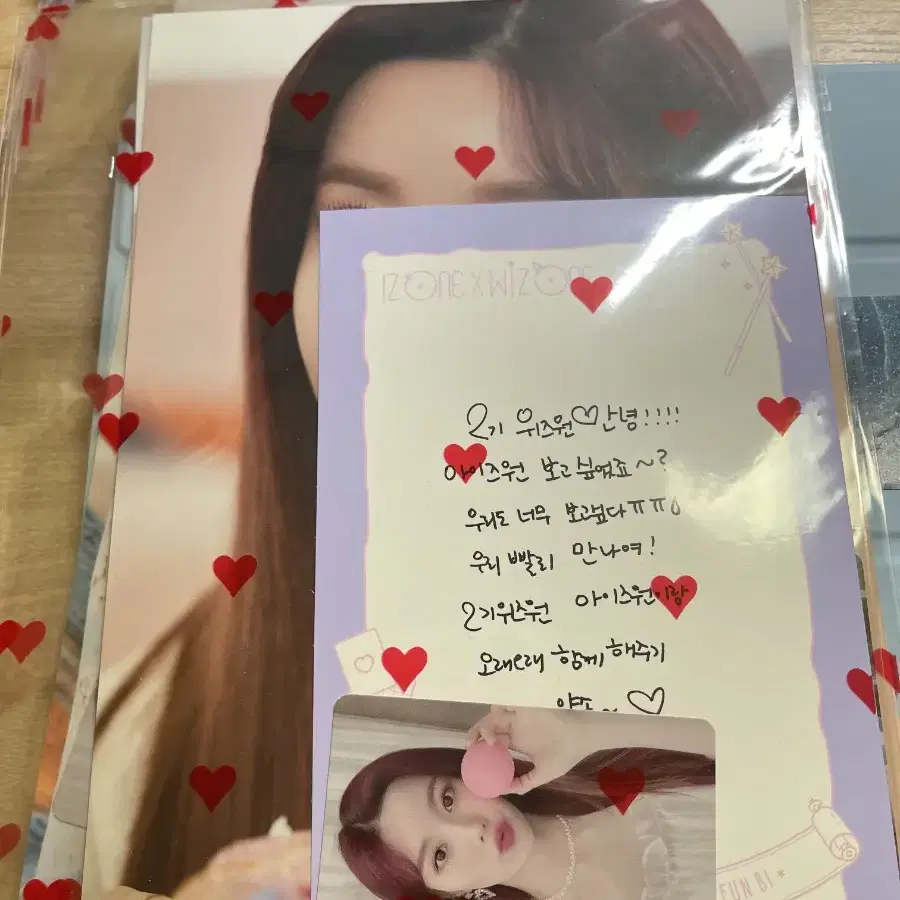 IZ*ONE X WIZ*ONE
2기 위즈원♡안녕!!!!
아이즈원 보고싶었죠~?
우리도 너무 보고싶다ㅠㅠ
우리 빨리 만나여!
2기위즈원 아이즈원이랑
오래오래 함께 해주기
약속~♡
EUN BI *